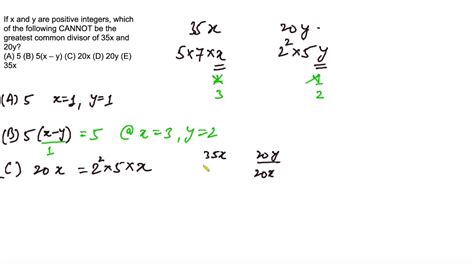 If x and y are positive integers, which
of the following CANNOT be the
greatest common divisor of 35x and
20y?
(A) 5 (B) 5(x – y) (C) 20x (D) 20y (E)
35x
35x 20y.
5×7×x 2²×5y
x 1
3 2
(A) 5 x=1, y=1
(B) 5(x-y) = 5 @ x=3, y=2
1
(C) 20x = 2²×5×x
35x 20y
20x